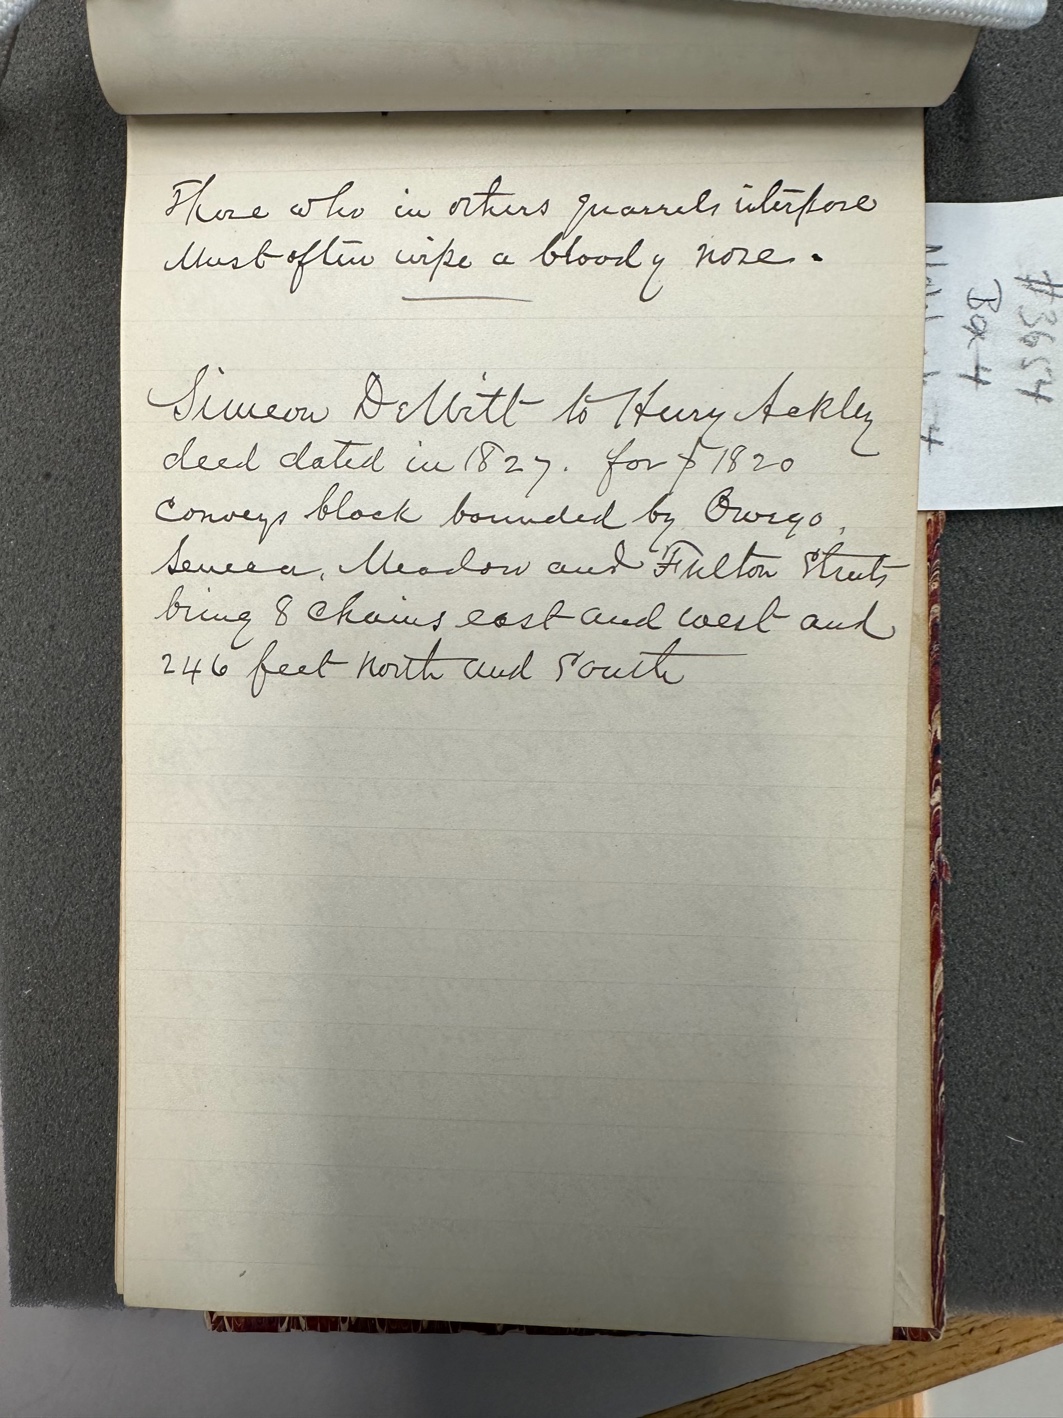 Those who in others quarrels interpose
Must often wipe a bloody nose.
Simeon DeWitt to Henry Ackley
deed dated in 1827. for $1820
conveys block bounded by Owego,
Seneca, Meadow and Fulton Streets
being 8 chains east and west and
246 feet north and South
#3654
Box 4
4